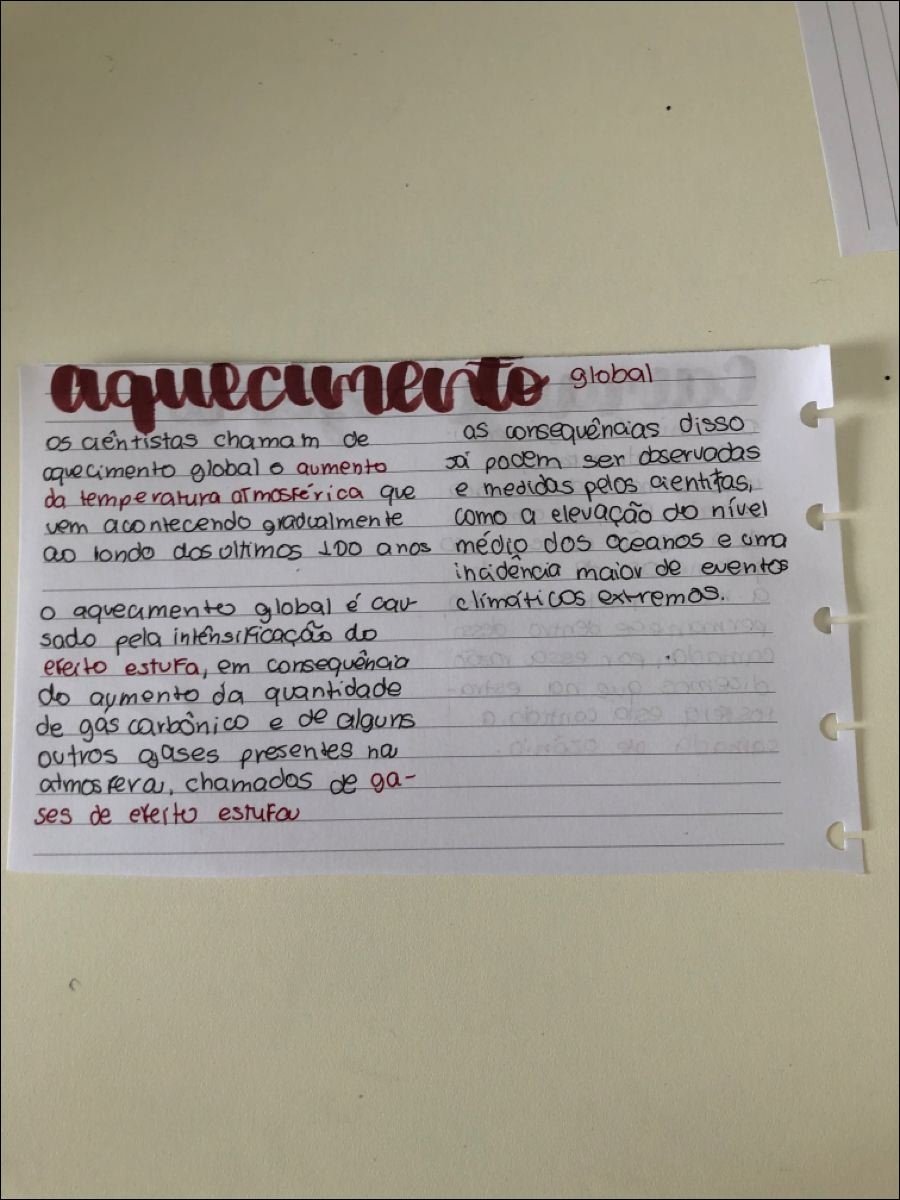 aquecimento global
os ciêntistas chamam de
aquecimento global o aumento
da temperatura atmosférica que
vem acontecendo gradualmente
ao londo dos ultimos 100 anos
o aquecimento global é cau-
sado pela intênsificação do
efeito estufa, em consequência
do aumento da quantidade
de gás carbônico e de alguns
outros gases presentes na
atmosfera, chamados de ga-
ses de efeito estufa
as consequências disso
já podem ser observadas
e medidas pelos cientitas,
como a elevação do nível
médio dos oceanos e uma
incidência maior de eventos
clímáticos extremos.